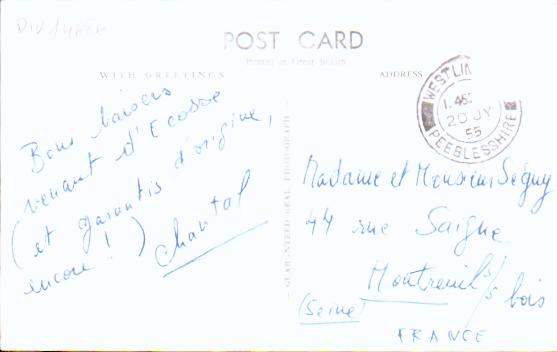 POST CARD
Printed in Great Britain
WITH GREETINGS
ADDRESS
WEST LIN
20 JY
55
PEEBLESSHIRE
Bons baisers
venant d'Ecosse
(et garantis d'origine,
encore!)
Chantal
GUARANTEED REAL PHOTOGRAPH
Madame et Monsieur Séguy
44 rue Saigne
Montreuil s/s bois
(Seine)
FRANCE